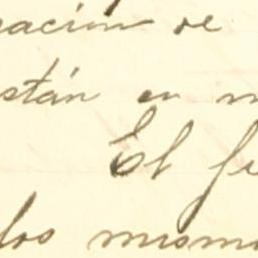 ración de
están en m
El fe
los mismo